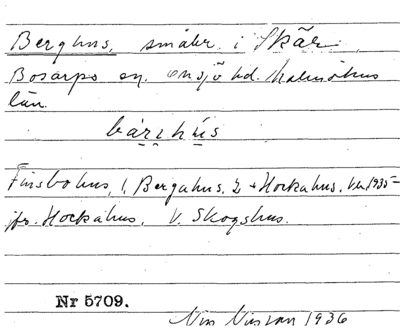 Berghus, småbr. i Skär
Bosarps sn. Onsjö hd. Malmöhus
län.
bárzhús
Finsbohus, 1, Bergahus. 2 + Hockahus. 1935-
jfr. Hockahus. V. Skogshus.
Nr 5709.
Nils Nilsson 1936